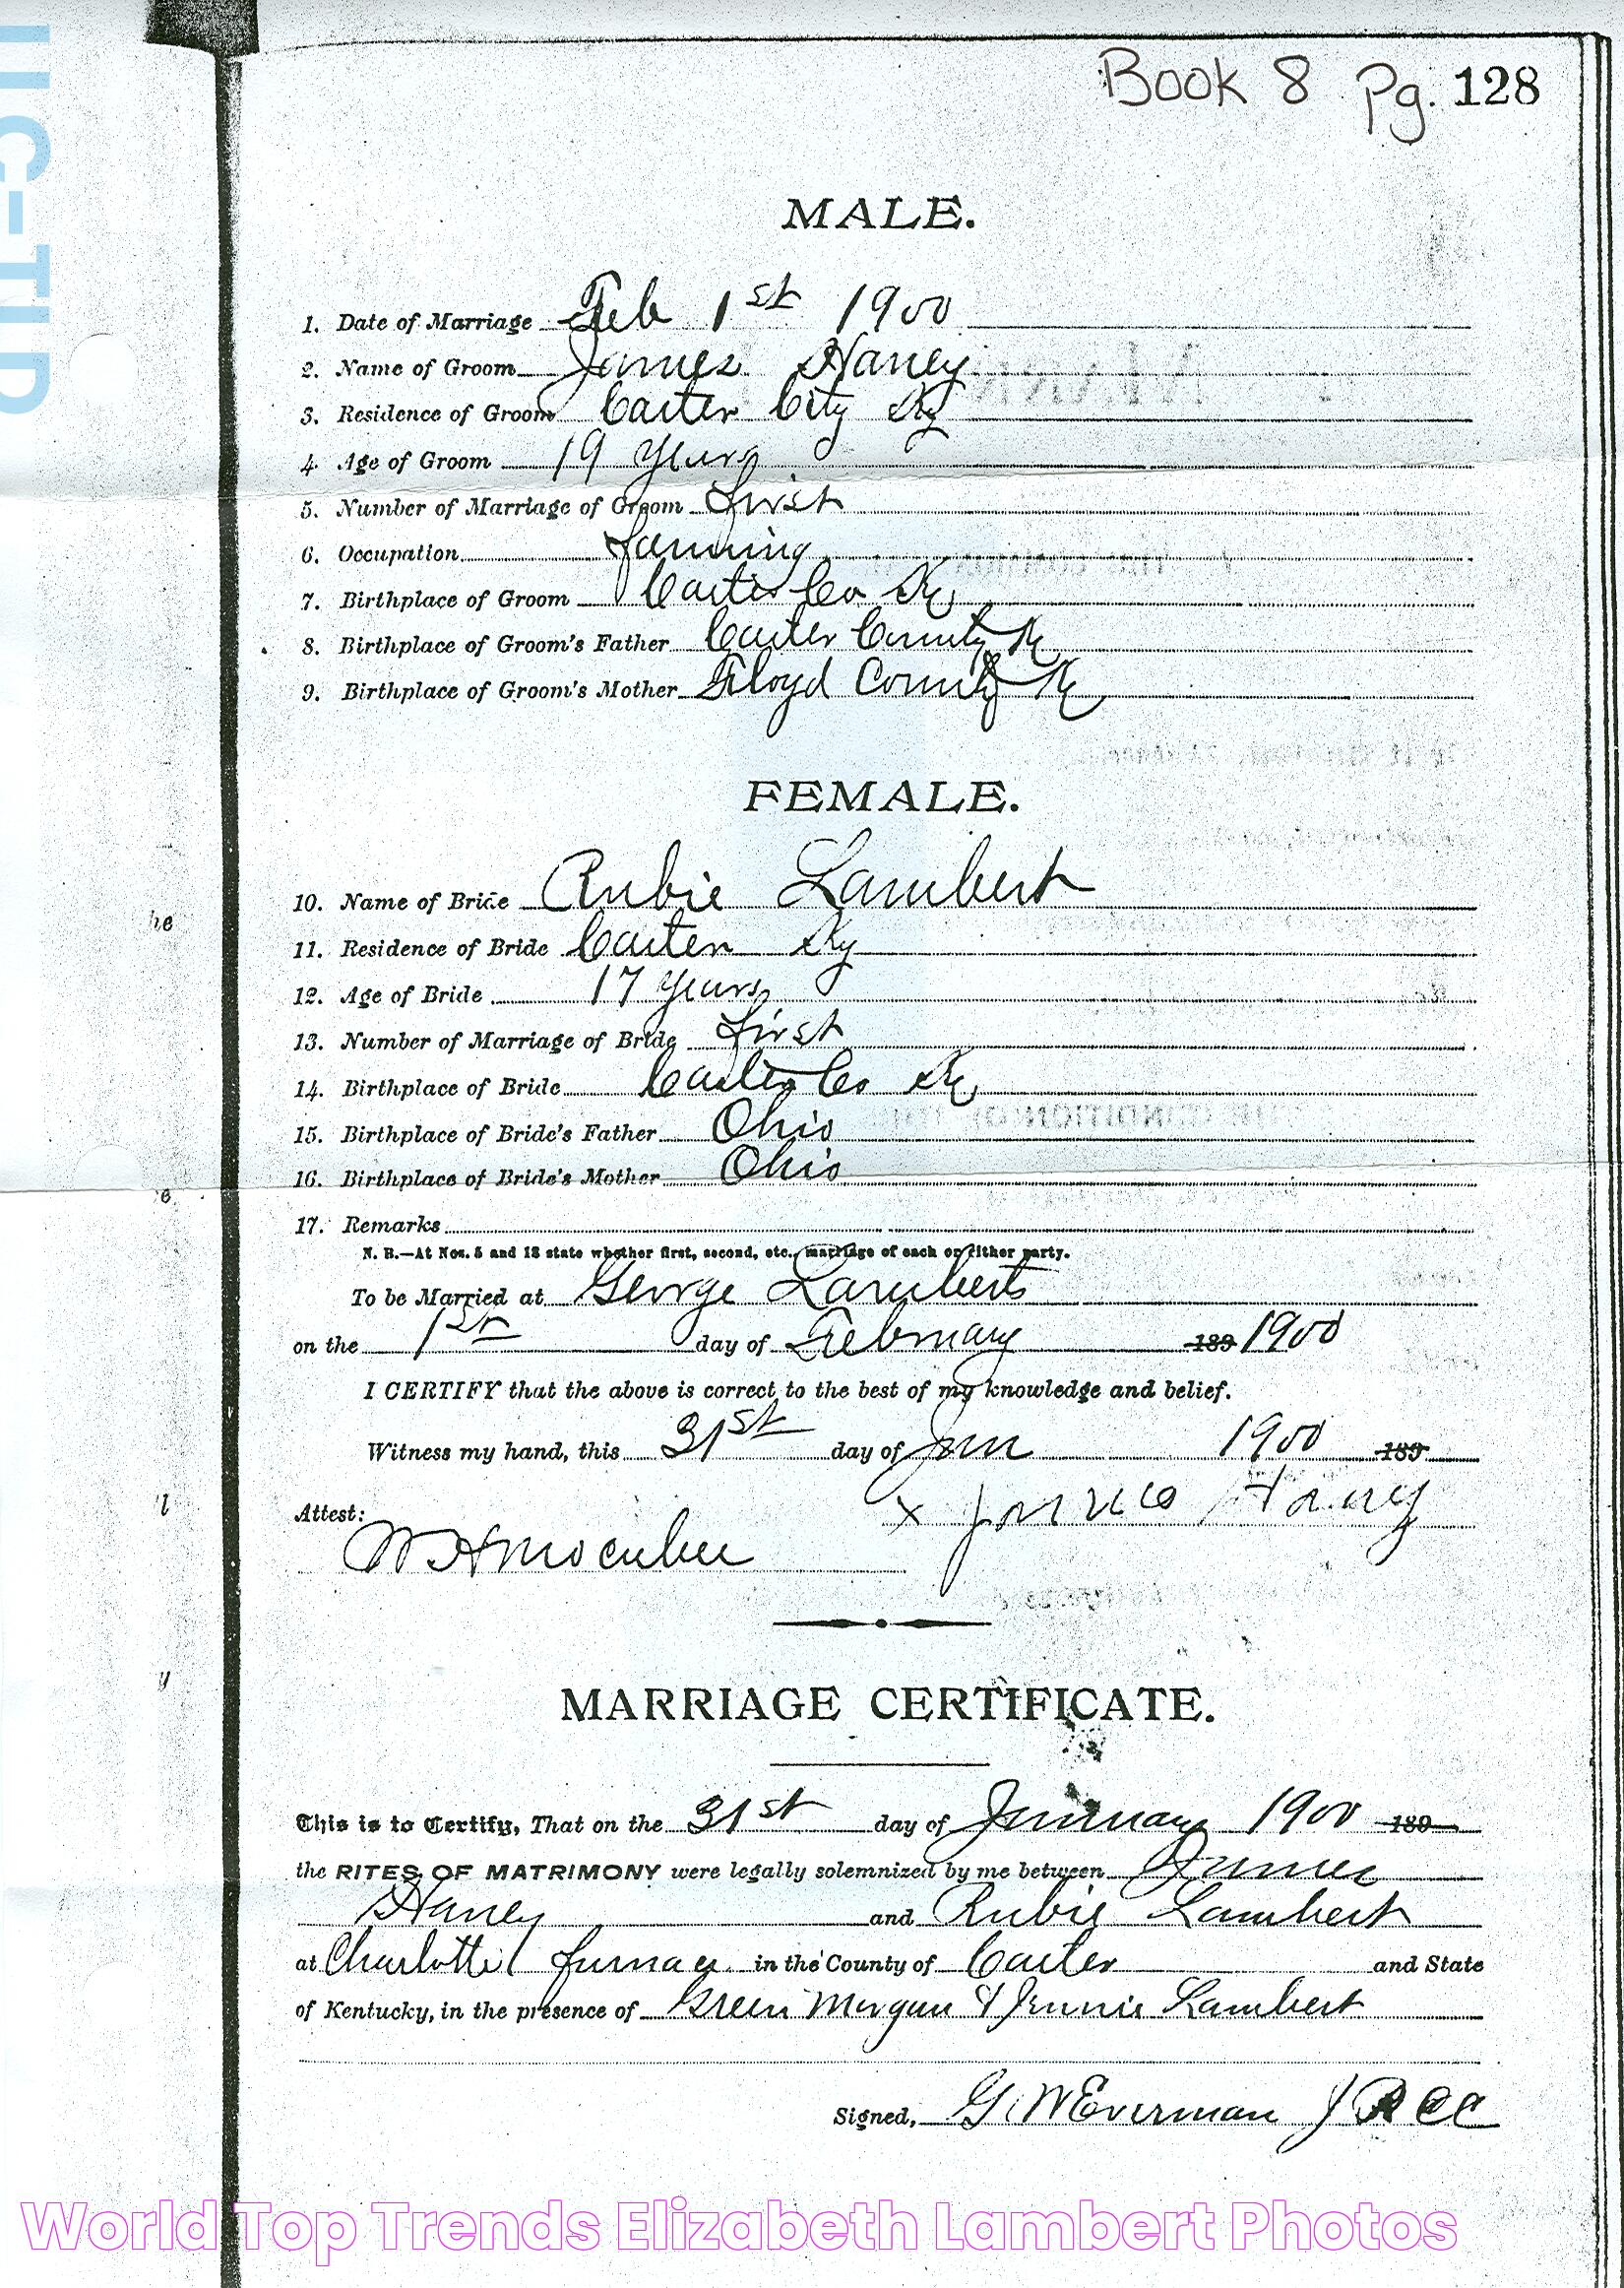 Book 8 Pg. 128
MALE.
1. Date of Marriage Feb 1st 1900
2. Name of Groom James Haney
3. Residence of Groom Carter City Ky
4. Age of Groom 19 Years
5. Number of Marriage of Groom first
6. Occupation farming
7. Birthplace of Groom Carter Co Ky
8. Birthplace of Groom's Father Carter County Ky
9. Birthplace of Groom's Mother Floyd County Ky
FEMALE.
10. Name of Bride Rubie Lambert
11. Residence of Bride Carter Ky
12. Age of Bride 17 Years
13. Number of Marriage of Bride first
14. Birthplace of Bride Carter Co Ky
15. Birthplace of Bride's Father Ohio
16. Birthplace of Bride's Mother Ohio
17. Remarks
N. B.—At Nos. 5 and 13 state whether first, second, etc., marriage of each or either party.
To be Married at George Lamberts
on the 1st day of February 189 1900
I CERTIFY that the above is correct to the best of my knowledge and belief.
Witness my hand, this 31st day of Jan 1900 189
x James Haney
Attest:
MARRIAGE CERTIFICATE.
This is to Certify, That on the 31st day of January 1900 189
the RITES OF MATRIMONY were legally solemnized by me between James
Haney and Rubie Lambert
at Charlotte furnace in the County of Carter and State
of Kentucky, in the presence of Green Morgan & Jennie Lambert
Signed, G. W Everman J
World Top Trends Elizabeth Lambert Photos